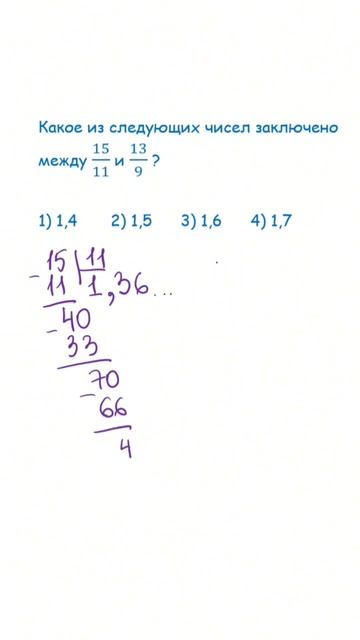 Какое из следующих чисел заключено
между 15/11 и 13/9 ?
1) 1,4 2) 1,5 3) 1,6 4) 1,7
15 | 11
- 11 | 1,36...
- 40
33
70
- 66
4